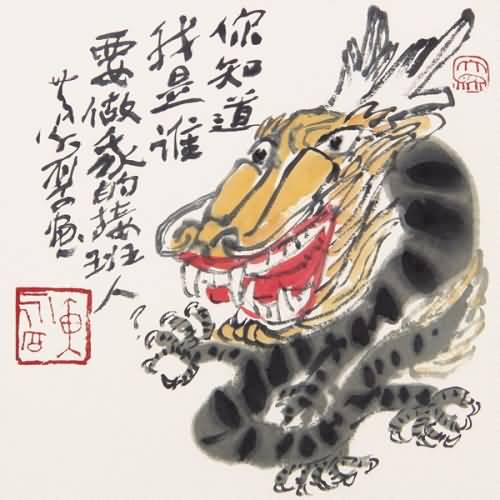 你知道
我是谁
要做我的接班人?